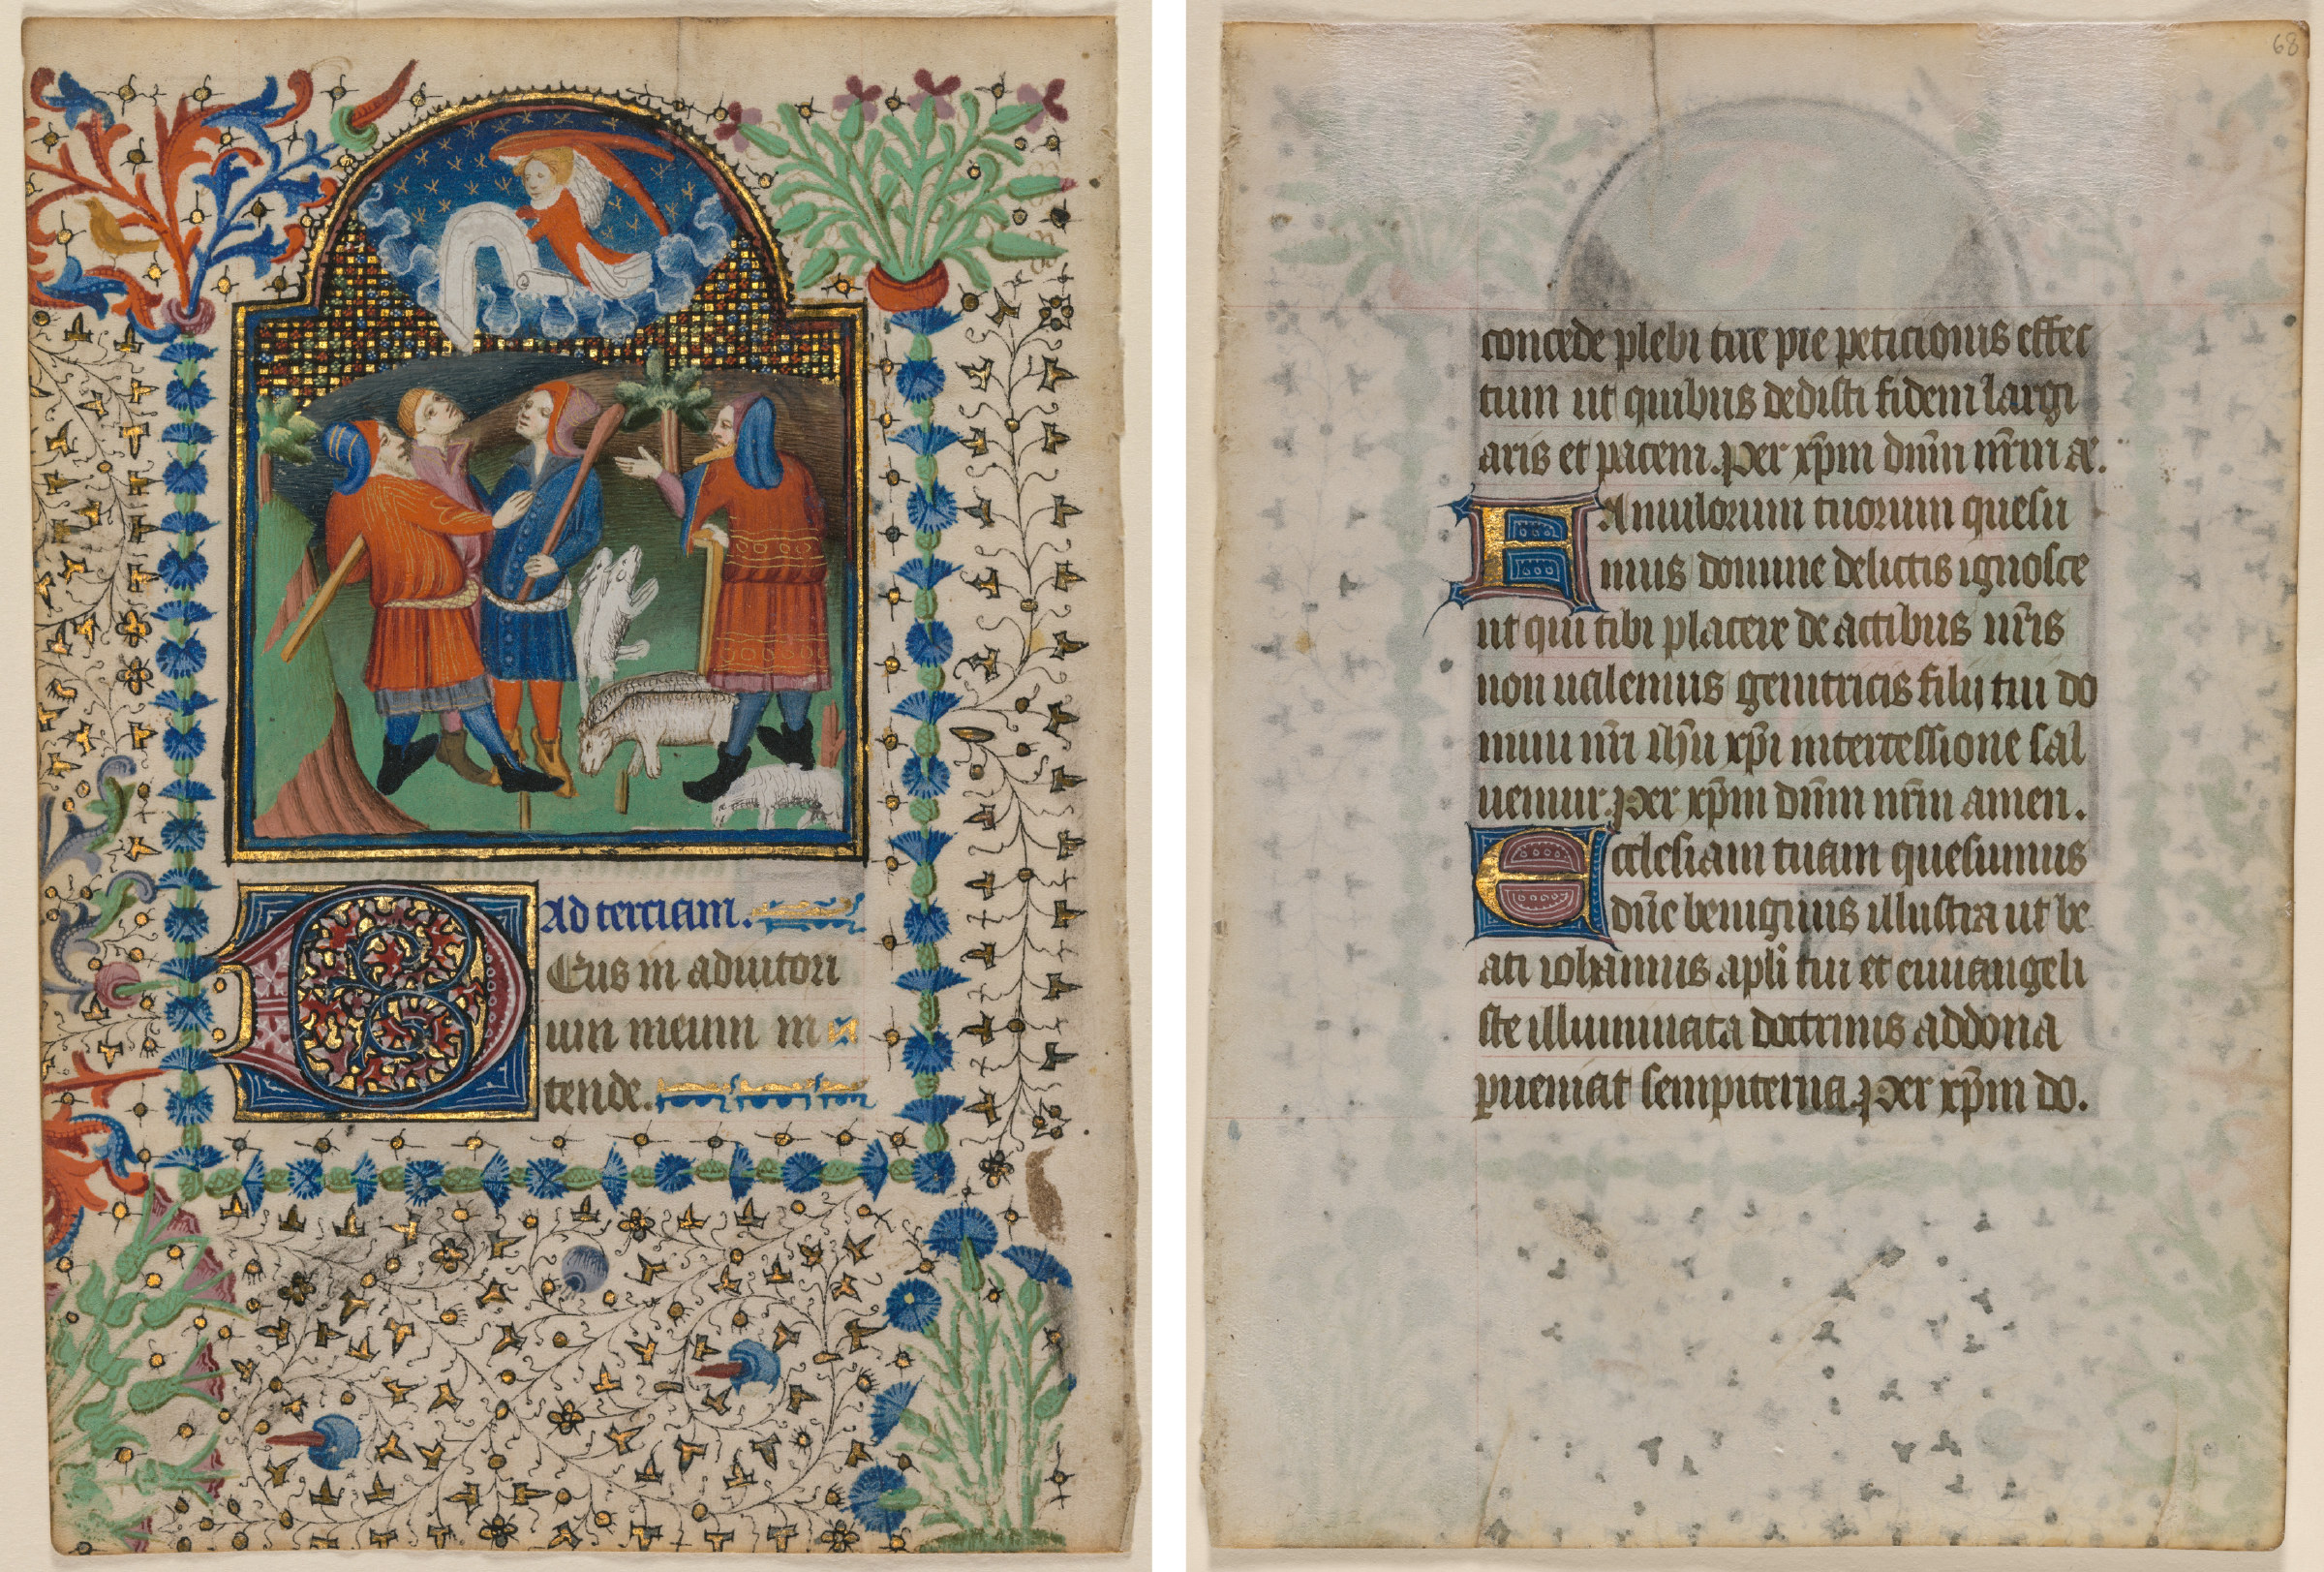 Ad terciam.
Eus in adiutori
um meum in
tende.
68
concede plebi tue pie peticionis effec
tum ut quibus dedisti fidem largi
aris et pacem. Per xp̄m dn̄m nr̄m
FAmulorum tuorum quesu
mus domine delictis ignosce
ut qui tibi placere de actibus nr̄is
non ualemus genitricis filij tui do
mini nr̄i ihū xp̄i intercessione sal
uemur. Per xp̄m dn̄m nr̄m amen.
Ecclesiam tuam quesumus
dn̄e benignus illustra ut be
ati iohannis apl̄i tui et euuangeli
ste illuminata doctrinis ad dona
ꝑueniat sempiterna. Per xp̄m do.